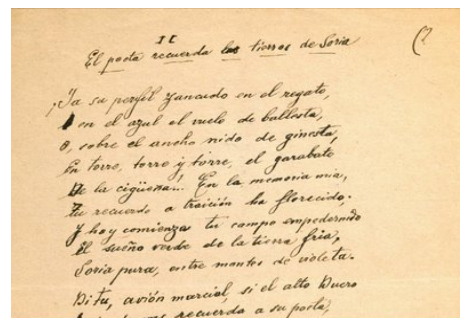 II
El poeta recuerda las tierras de Soria
¡Ya su perfil zancudo en el regato,
en el azul el vuelo de ballesta,
o, sobre el ancho nido de ginesta,
en torre, torre y torre, el garabato
de la cigüeña!... En la memoria mia,
tu recuerdo a traición ha florecido;
y hoy comienza tu campo empedernido
el sueño verde de la tierra fria,
Soria pura, entre montes de violeta.
Di tu, avión marcial, si el alto Duero
recuerda a su poeta,